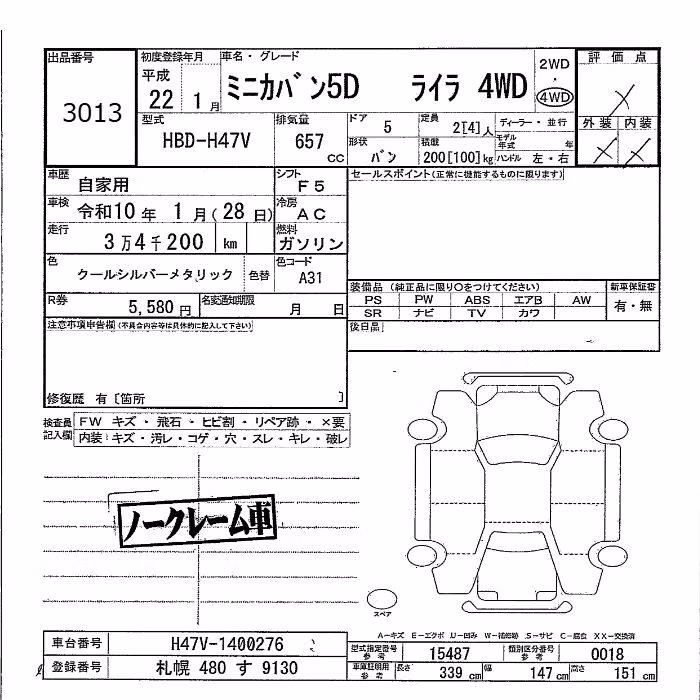 出品番号 3013
初度登録年月 平成 22 1月
車名・グレード ミニカバン5D ライラ 4WD
2WD ・ 4WD
評価点 ×
外装 内装
× ×
型式 HBD-H47V
排気量 657 CC
ドア 5
定員 2[4]人
ディーラー・並行
モデル年式 年
形状 バン
積載 200[100]kg
ハンドル 左・右
車歴 自家用
シフト F5
セールスポイント(正常に機能するものに限ります)
車検 令和10年 1月(28日)
冷房 AC
走行 3万4千200 km
燃料 ガソリン
色 クールシルバーメタリック 色替
色コード A31
装備品 (純正品に限り〇をつけてください)
新車保証書
PS PW ABS エアB AW
有・無
SR ナビ TV カワ
R券 5,580円
名変通知期限 月 日
後日品
注意事項申告欄(不具合内容等は具体的に記入して下さい)
修復歴 有〔箇所 〕
検査員記入欄
FW キズ・飛石・ヒビ割・リペア跡・×要
内装:キズ・汚レ・コゲ・穴・スレ・キレ・破レ
ノークレーム車
スペア
A−キズ E−エクボ U−凹み W−補修跡 S−サビ C−腐食 XX−交換済
車台番号 H47V-1400276
型式指定番号参考 15487
類別区分番号参考 0018
登録番号 札幌 480 す 9130
車庫証明用参考 長さ 339 cm 幅 147 cm 高さ 151 cm